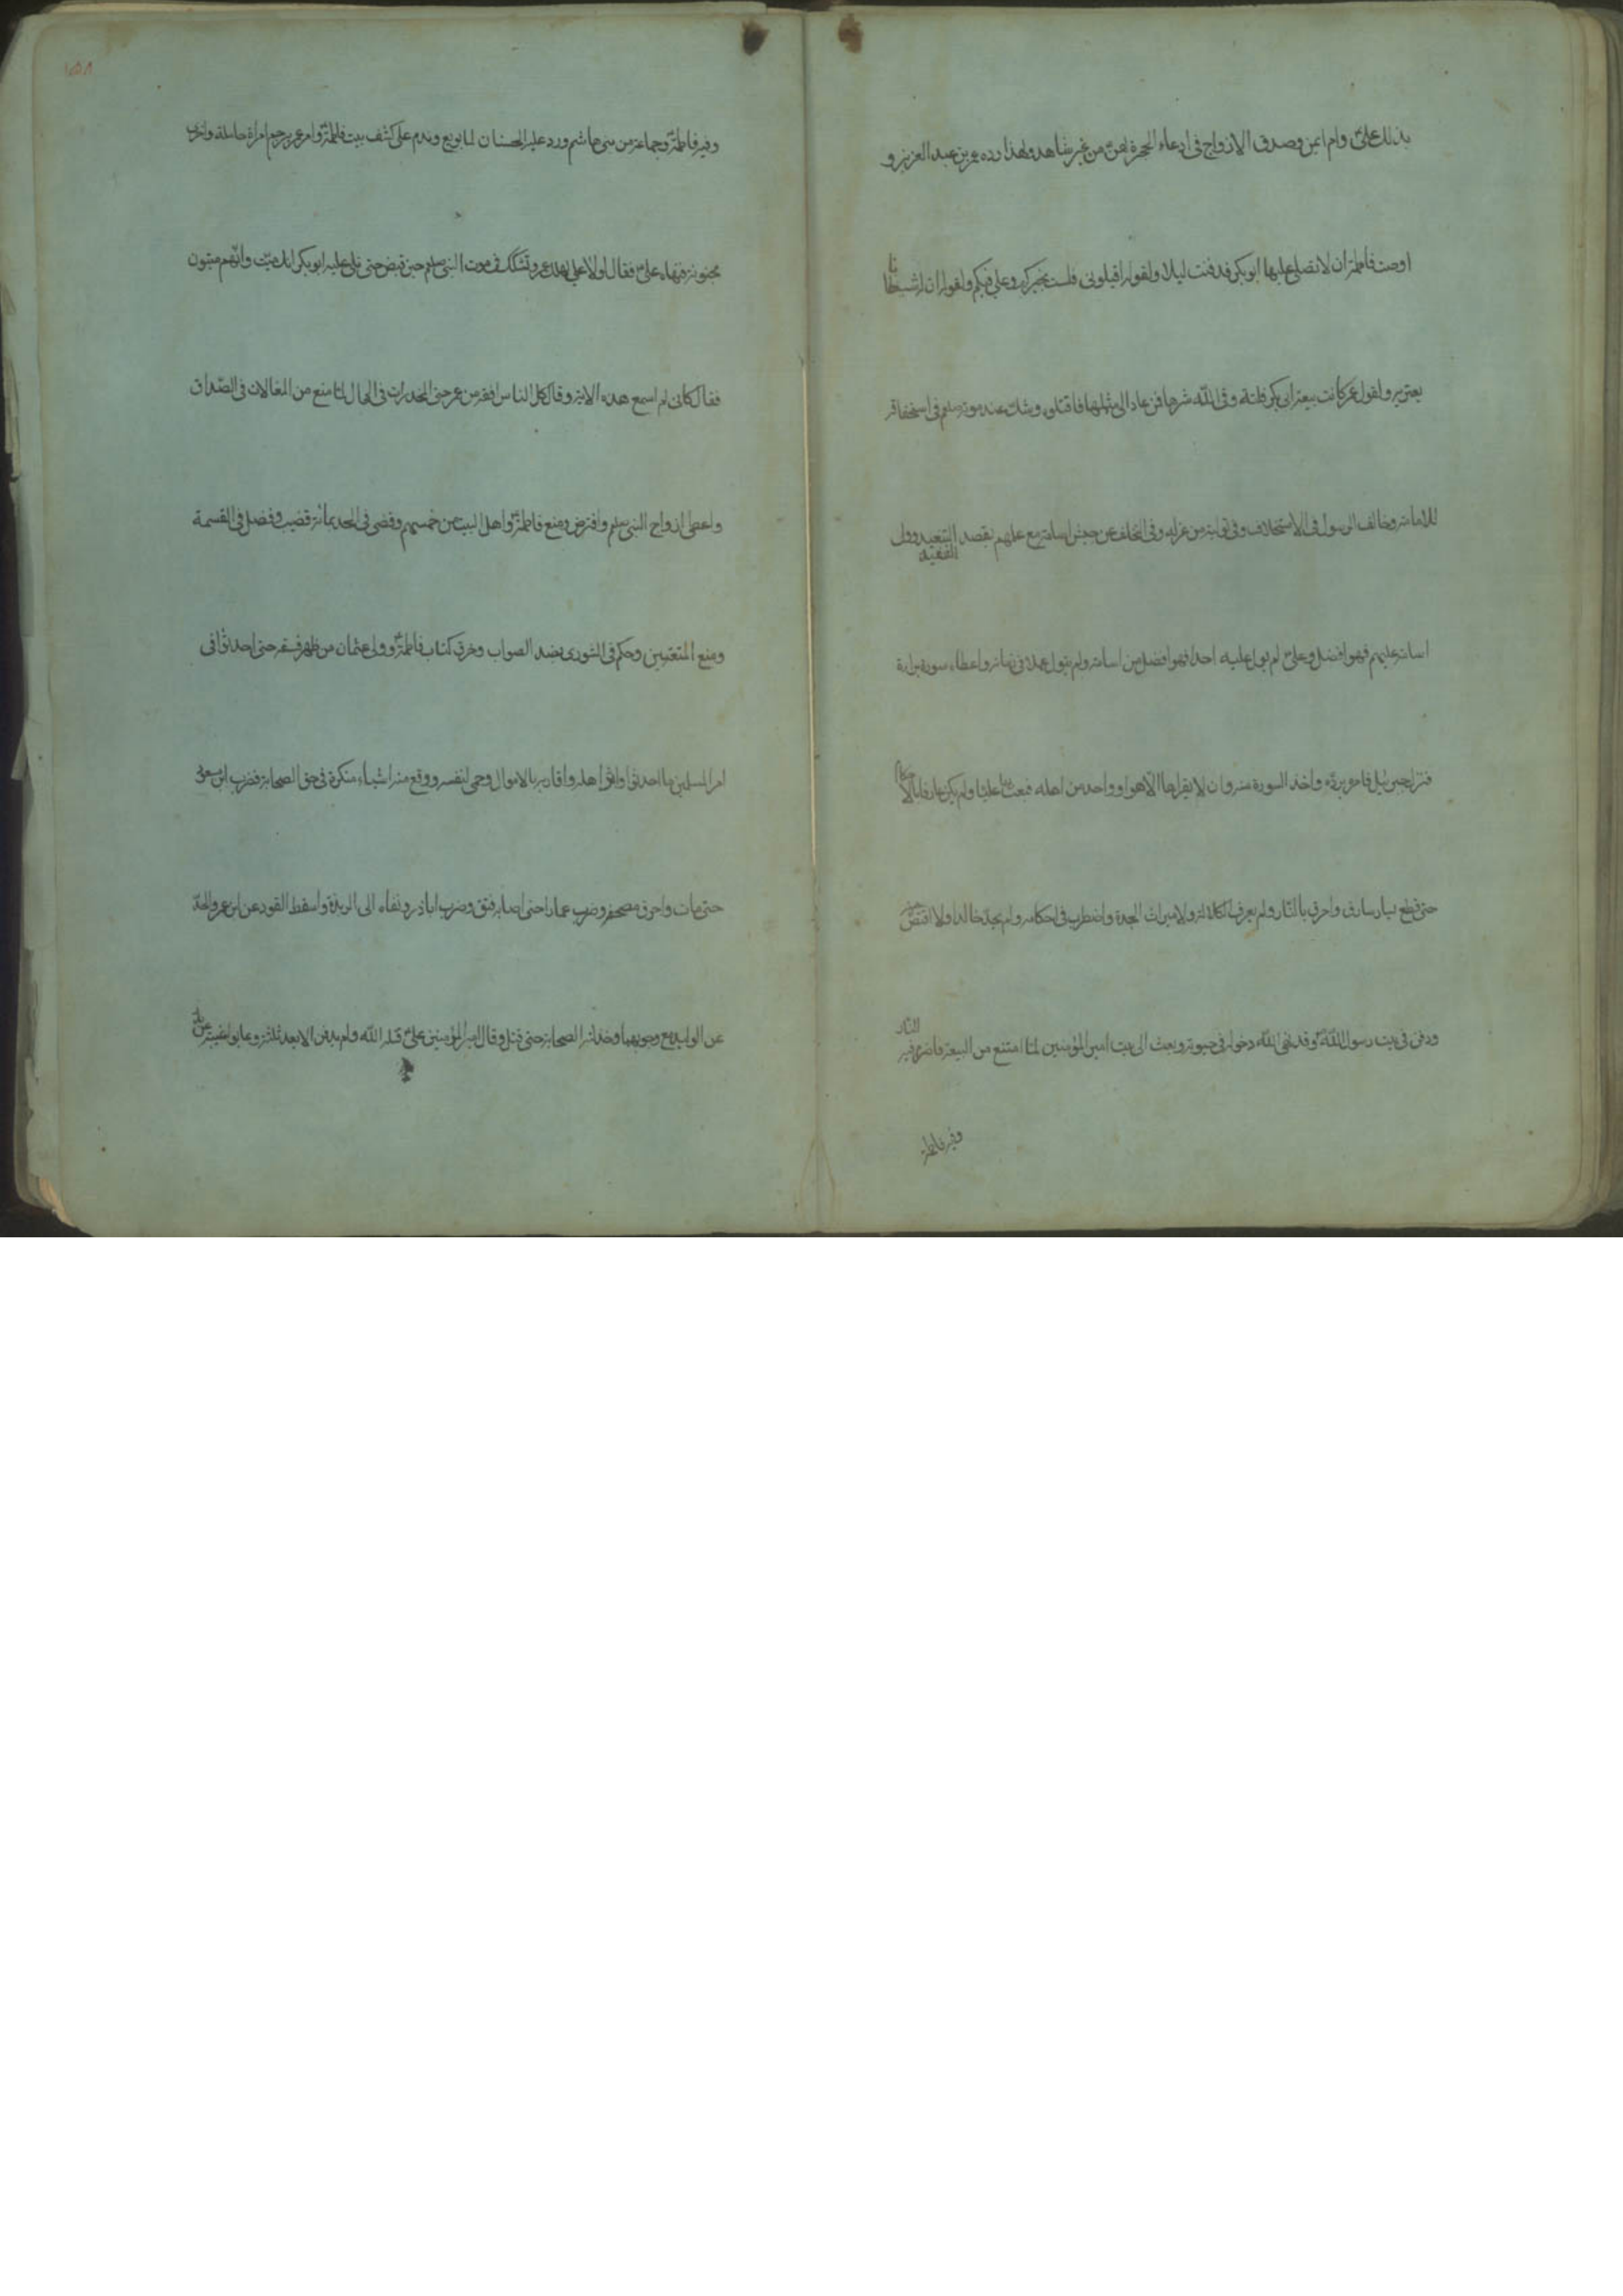 بذلك علىّ وام ايمن وصدق الازواج فى ادعاء الحجرة لهنّ من غير شاهد ولهذا رده عمر بن عبد العزيز و
اوصت فاطمة ان لا تصلى عليها ابو بكر فدفنت ليلا ولقوله اقيلونى فلست بخيركم وعلى فيكم ولقوله ان له شيطانا
يعتريه ولقول عمر كانت بيعة ابى بكر فلتة وقى الله شرها فمن عاد الى مثلها فاقتلوه وشك عند موته صلعم فى استحقاقه
للامامة وخالف الرسول فى الاستخلاف وفى تولية من عزله وفى التخلف عن جيش اسامة مع علمهم بقصد التبعيد وولى
التنفيذ
اسامة عليهم فهو افضل وعلىّ لم يول عليه احدا فهو افضل من اسامة ولم يتول عملا فى زمانه واعطاه سورة براءة
فنزل جبرئيل فامر برده واخذ السورة منه وان لا يقراها الا هو او واحد من اهله فبعث بها عليّا ولم يكن عارفا بالاحكام
حتى قطع يسار سارق واحرق بالنّار ولم يعرف الكلالة ولا ميراث الجدة واضطرب فى احكامه ولم يحدّ خالدا ولا اقتصّ منه
ودفن فى بيت رسول اللّه وقد نهى اللّه دخوله فى حيوته وبعث الى بيت امير المؤمنين لمّا امتنع من البيعة فاضرم فيه النّار
وفيه فاطمة
١٥٨
وفيه فاطمةّ وجماعة من بنى هاشم ورد عليه الحسنان لما بويع وندم على كشف بيت فاطمةّ وامر عمر برجم امراة حاملة واخرى
مجنونة فنهاه علىّ فقال لولا على لهلك عمر وتشكك فى موت النبى صلعم حين قبض حتى تلى عليه ابو بكر انك ميّت وانّهم ميّتون
فقال كانى لم اسمع هذه الاية وقال كل الناس افقه من عمر حتى المخدرات فى الحجال لمّا منع من المغالات فى الصّداق
واعطى ازواج النبى صلعم واقترض ومنع فاطمةّ واهل البيت من خمسهم وقضى فى الحد بمائة قضيب وفضل فى القسمة
ومنع المتعتين وحكم فى الشورى بضد الصواب وخرق كتاب فاطمةّ وولى عثمان من ظهر فسقه حتى احدثوا فى
امر المسلمين ما احدثوا واثر اهله واقاربه بالاموال وحمى لنفسه ووقع منه اشياء منكرة فى حق الصحابة فضرب ابن مسعود
حتى مات واحرق مصحفه وضرب عمارا حتى اصابه فتق وضرب اباذر ونفاه الى الربذة واسقط القود عن ابن عمر والحدّ
عن الوليد مع وجوبهما وخذلته الصحابة حتى قتل وقال امير المؤمنين علىّ قتله اللّه ولم يدفن الا بعد ثلثة وعابوا غيبته عن بدر